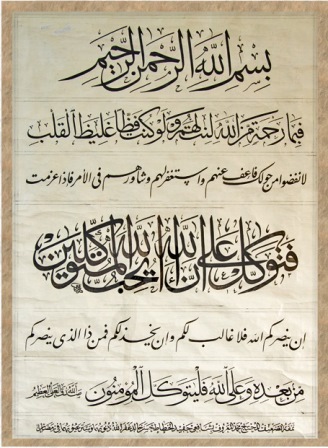 بسم الله الرحمن الرحيم
فبما رحمة من الله لنت لهم ولو كنت فظا غليظ القلب
لانفضوا من حولك فاعف عنهم واستغفر لهم وشاورهم في الأمر فإذا عزمت
فتوكل على الله إن الله يحب المتوكلين
إن ينصركم الله فلا غالب لكم وإن يخذلكم فمن ذا الذي ينصركم
من بعده وعلى الله فليتوكل المؤمنون صدق الله العظيم